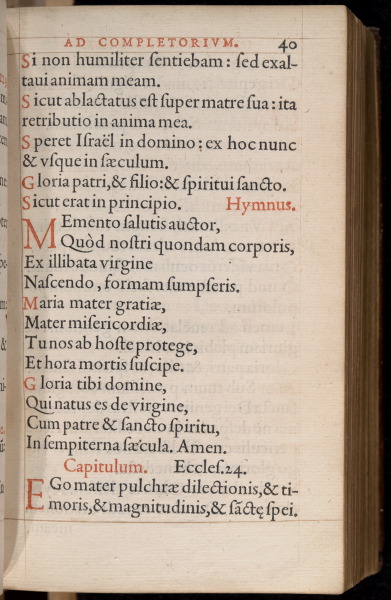 AD COMPLETORIVM. 40
Si non humiliter sentiebam: sed exal-
taui animam meam.
Sicut ablactatus est super matre sua: ita
retributio in anima mea.
Speret Israël in domino: ex hoc nunc
& vsque in sæculum.
Gloria patri, & filio: & spiritui sancto.
Sicut erat in principio. Hymnus.
MEmento salutis auctor,
Quòd nostri quondam corporis,
Ex illibata virgine
Nascendo, formam sumpseris.
Maria mater gratiæ,
Mater misericordiæ,
Tu nos ab hoste protege,
Et hora mortis suscipe.
Gloria tibi domine,
Qui natus es de virgine,
Cum patre & sancto spiritu,
In sempiterna sæcula. Amen.
Capitulum. Eccles. 24.
EGo mater pulchræ dilectionis, & ti-
moris, & magnitudinis, & sãctę spei.